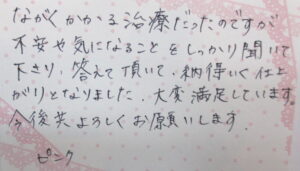 ながくかかる治療だったのですが
不安や気になることをしっかり聞いて
下さり、答えて頂いて、納得いく仕上
がりとなりました。大変満足しています。
今後共よろしくお願いします。
ピンク